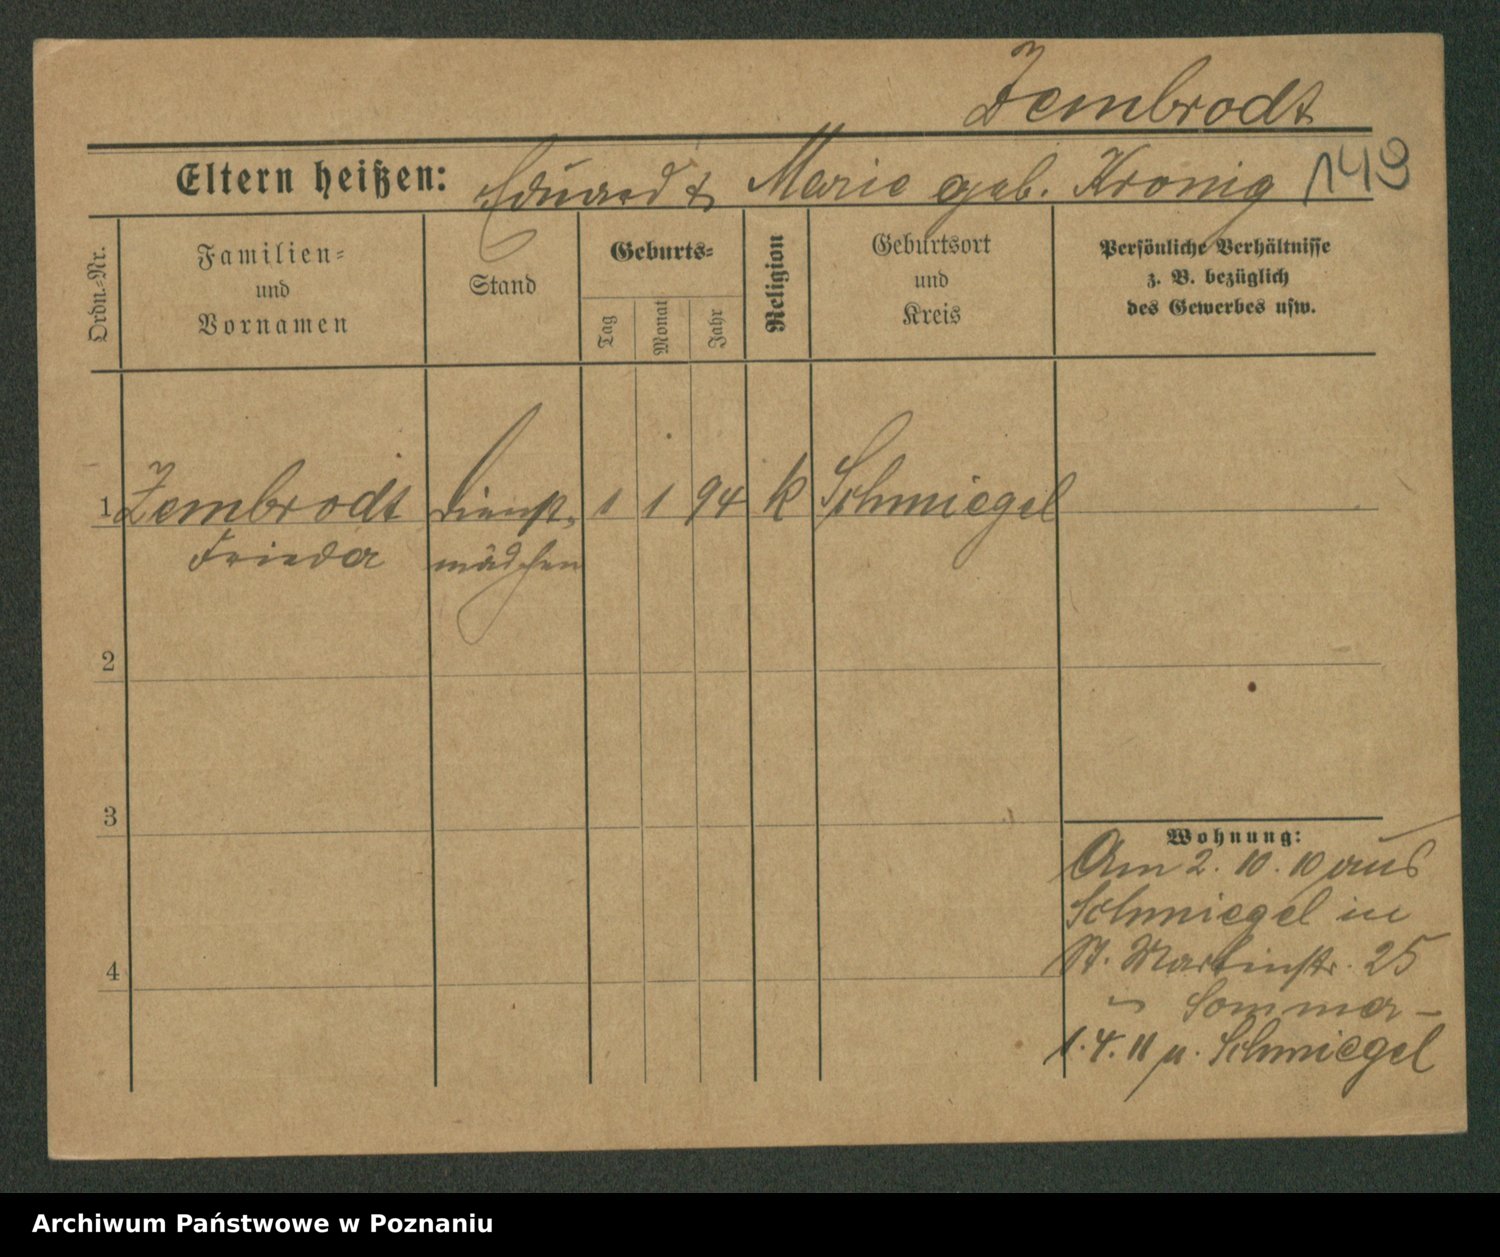 Zembrodt
Eltern heißen: Eduard & Marie geb. Kronig 149
Ordn.-Nr.
Familien-
und
Vornamen
Stand
Geburts-
Tag
Monat
Jahr
Religion
Geburtsort
und
Kreis
Persönliche Verhältnisse
z. B. bezüglich
des Gewerbes usw.
1 Zembrodt Dienst- 1 1 94 k Schmiegel
Frieda mädchen
2
3
Wohnung:
Am 2. 10. 10 aus
Schmiegel in
St. Martinstr. 25
Sommer -
4
1. 4. 11 n. Schmiegel
Archiwum Państwowe w Poznaniu